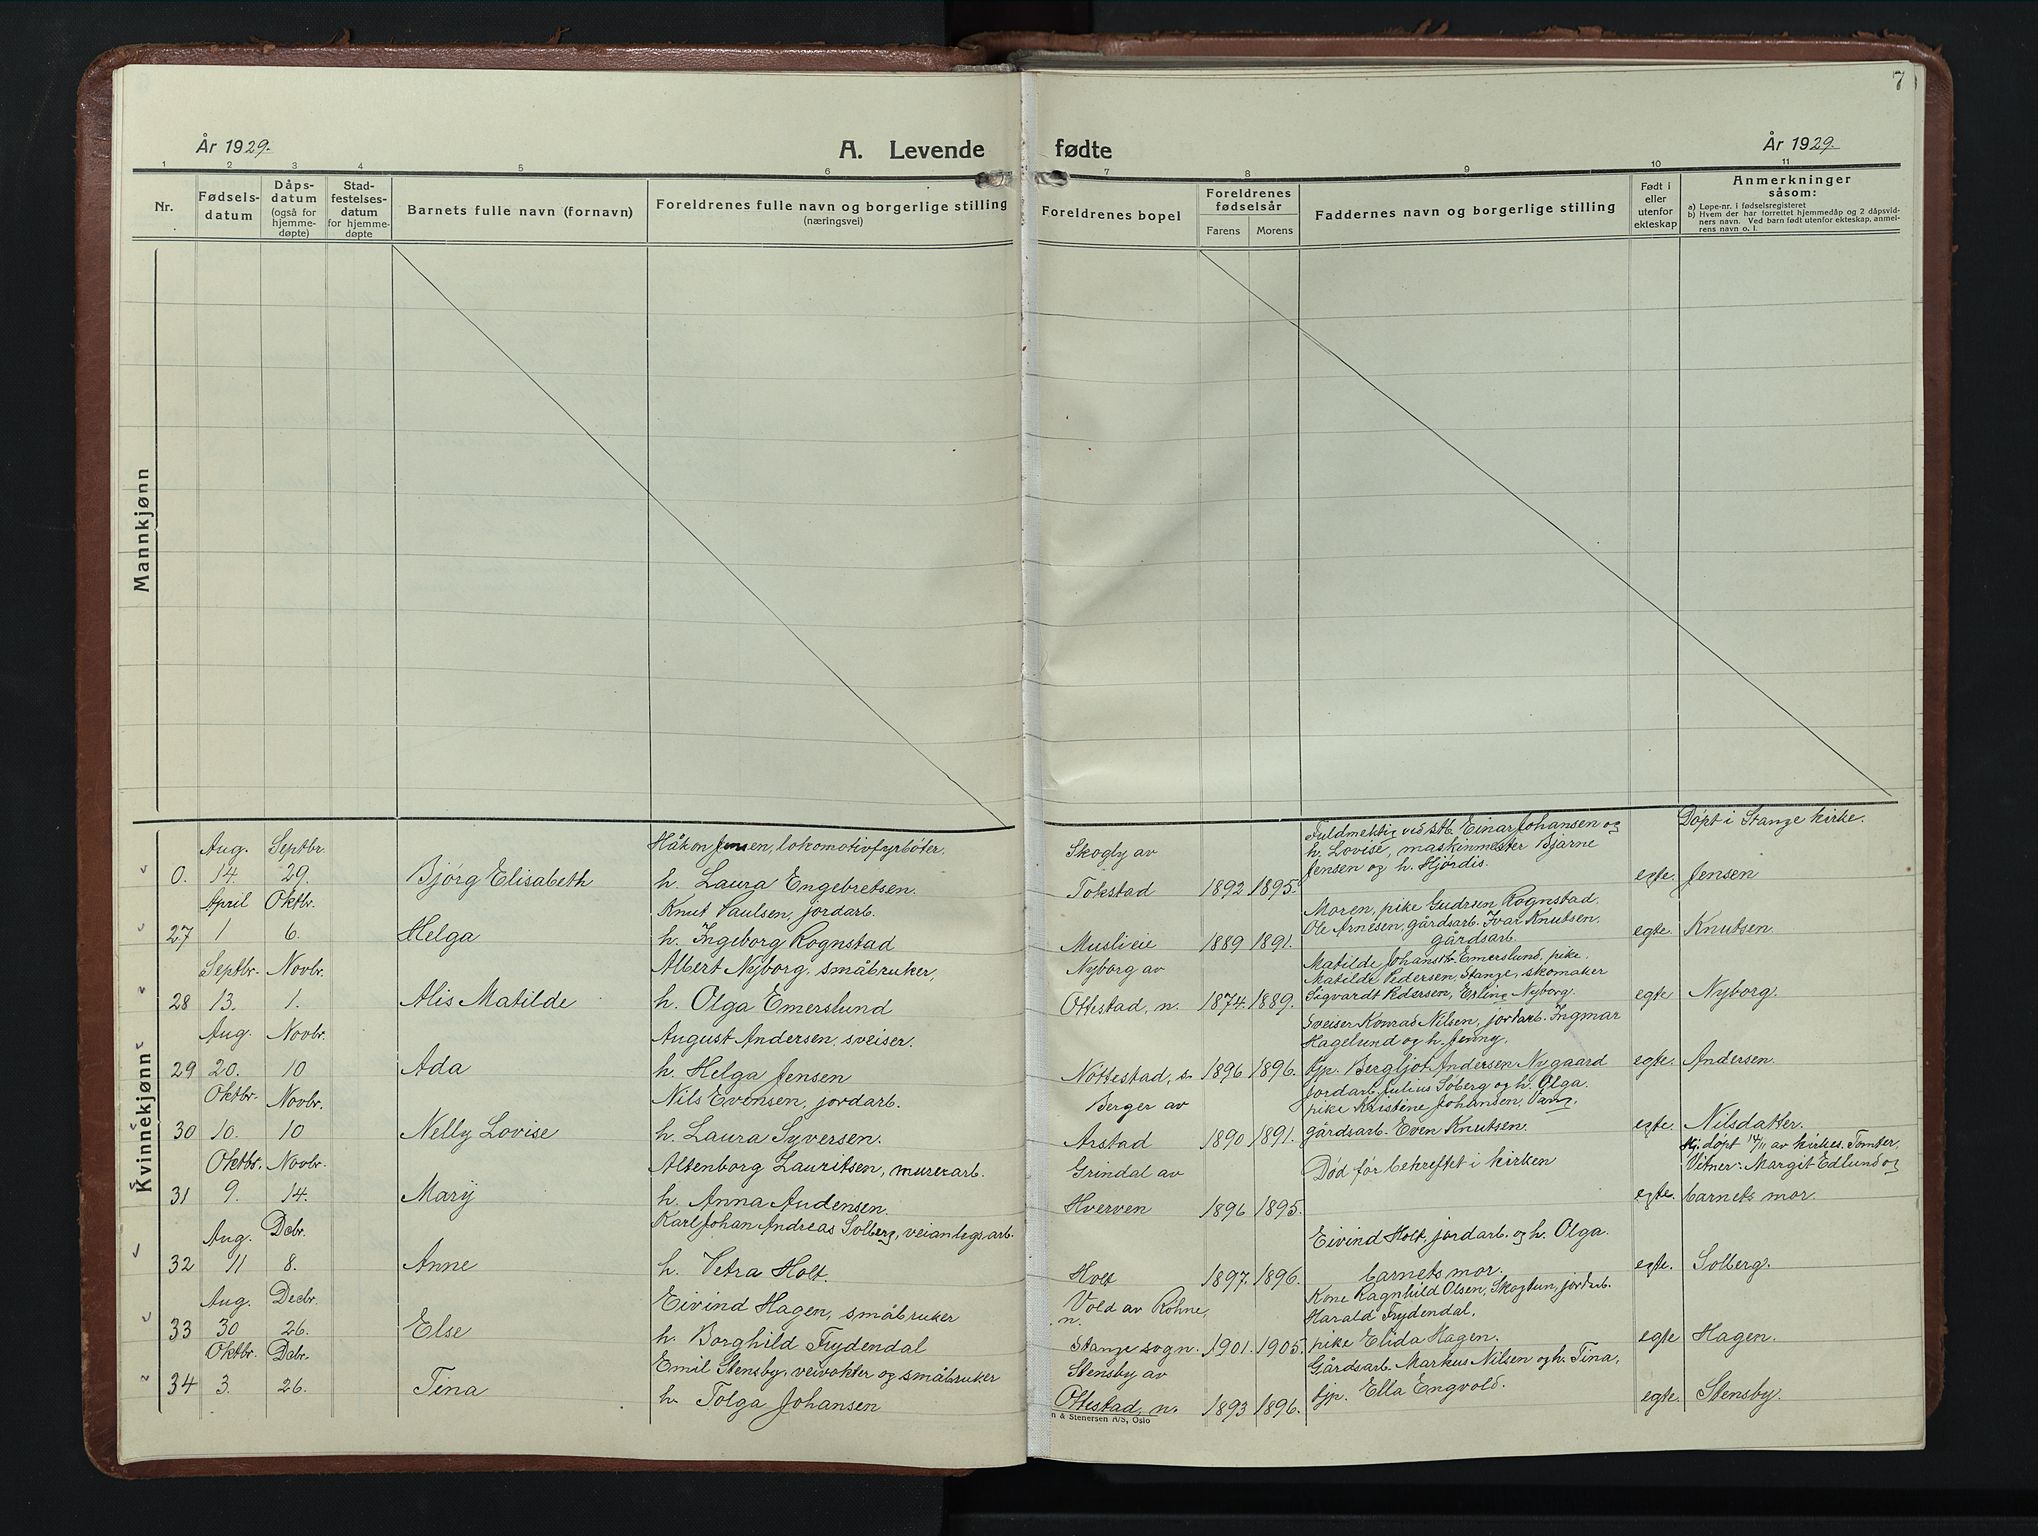 7
År 1929.
A. Levende fødte
År 1929.
1 2 3 4 5 6 7 8 9 10 11
Nr.
Fødsels-
datum
Dåps-
datum
(også for
hjemme-
døpte)
Stad-
festelses-
datum
for hjemme-
døpte
Barnets fulle navn (fornavn)
Foreldrenes fulle navn og borgerlige stilling
(næringsvei)
Foreldrenes bopel
Foreldrenes
fødselsår
Farens Morens
Faddernes navn og borgerlige stilling
Født i
eller
utenfor
ekteskap
Anmerkninger
såsom:
a) Løpe-nr. i fødselsregisteret
b) Hvem der har forrettet hjemmedåp og 2 dåpsvid-
ners navn. Ved barn født utenfor ekteskap, anmel-
rens navn o. l.
Mannkjønn
Kvinnekjønn
0.
Aug.
14.
Septbr.
29.
Bjørg Elisabeth
Håkon Jensen, lokomotivfyrbøter.
h. Laura Engebretsen.
Skogly av
Tokstad
1892 1895.
Fuldmektig ved stb. Einar Johansen og
h. Lovise, maskinmester Bjarne
Jensen og h. Hjørdis.
egte.
Døpt i Stange kirke.
Jensen
27
April
1
Oktbr.
6.
Helga
Knut Paulsen, jordarb.
h. Ingeborg Rognstad
Muslieie
1889 1891.
Moren, pike Gudrun Rognstad.
Ole Arnesen, gårdsarb. Ivar Knutsen.
gårdsarb.
egte.
Knutsen.
28
Septbr.
13.
Novbr.
1.
Alis Matilde
Albert Nyborg, småbruker,
h. Olga Emerslund
Nyborg av
Ottestad, n.
1874. 1889.
Matilde Johansdtr. Emerslund, pike.
Matilde Pedersen, Stange, skomaker
Sigvardt Pedersen, Erling Nyborg.
egte
Nyborg.
29
Aug.
20.
Novbr.
10
Ada
August Andersen, sveiser.
h. Helga Jensen
Nöttestad, s.
1896. 1896.
Sveiser Konrad Nilsen, jordarb. Ingmar
Hagelund og h. Jenny.
tjp. Bergljot Andersen Nygaard
egte.
Andersen.
30
Oktbr.
10.
Novbr.
10
Nelly Lovise
Nils Evensen, jordarb.
h. Laura Syversen.
Berger av
Arstad
1890 1891.
jordarb. Julius Söberg og h. Olga.
pike Kristine Johansen, Vang.
gårdsarb. Even Knutsen.
egte.
Nilsdatter.
31
Oktbr.
9.
Novbr.
14.
Mary
Altenborg Lauritsen, murerarb.
h. Anna Audensen.
Grindal av
Hverven
1896 1895.
Död før bekreftet i kirken
egte.
Hj. døpt 14/11 av kirkes. Tomter.
Vitner: Margit Edlund og
barnets mor.
32
Aug.
11
Debr.
8.
Anne
Karl Johan Andreas Solberg, veianlegsarb.
h. Petra Holt.
Holt
1897. 1896.
Eivind Holt, jordarb. og h. Olga.
barnets mor.
egte.
Solberg.
33
Aug.
30
Decbr.
26.
Else
Eivind Hagen, småbruker
h. Borghild Frydendal
Vold av Rohne,
n.
Stange sogn.
1901. 1905.
Kone Ragnhild Olsen, Skogtun, jordarb.
Harald Frydendal.
pike Elida Hagen.
egte
Hagen.
34
Oktbr.
3.
Debr.
26.
Tina
Emil Stensby, veivokter og småbruker
h. Tolga Johansen
Stensby av
Ottestad, n.
1893 1896.
Gårdsarb. Markus Nilsen og h. Tina.
tjp. Ella Engvold.
egte.
Stensby.
n & Stenersen A/S, Oslo